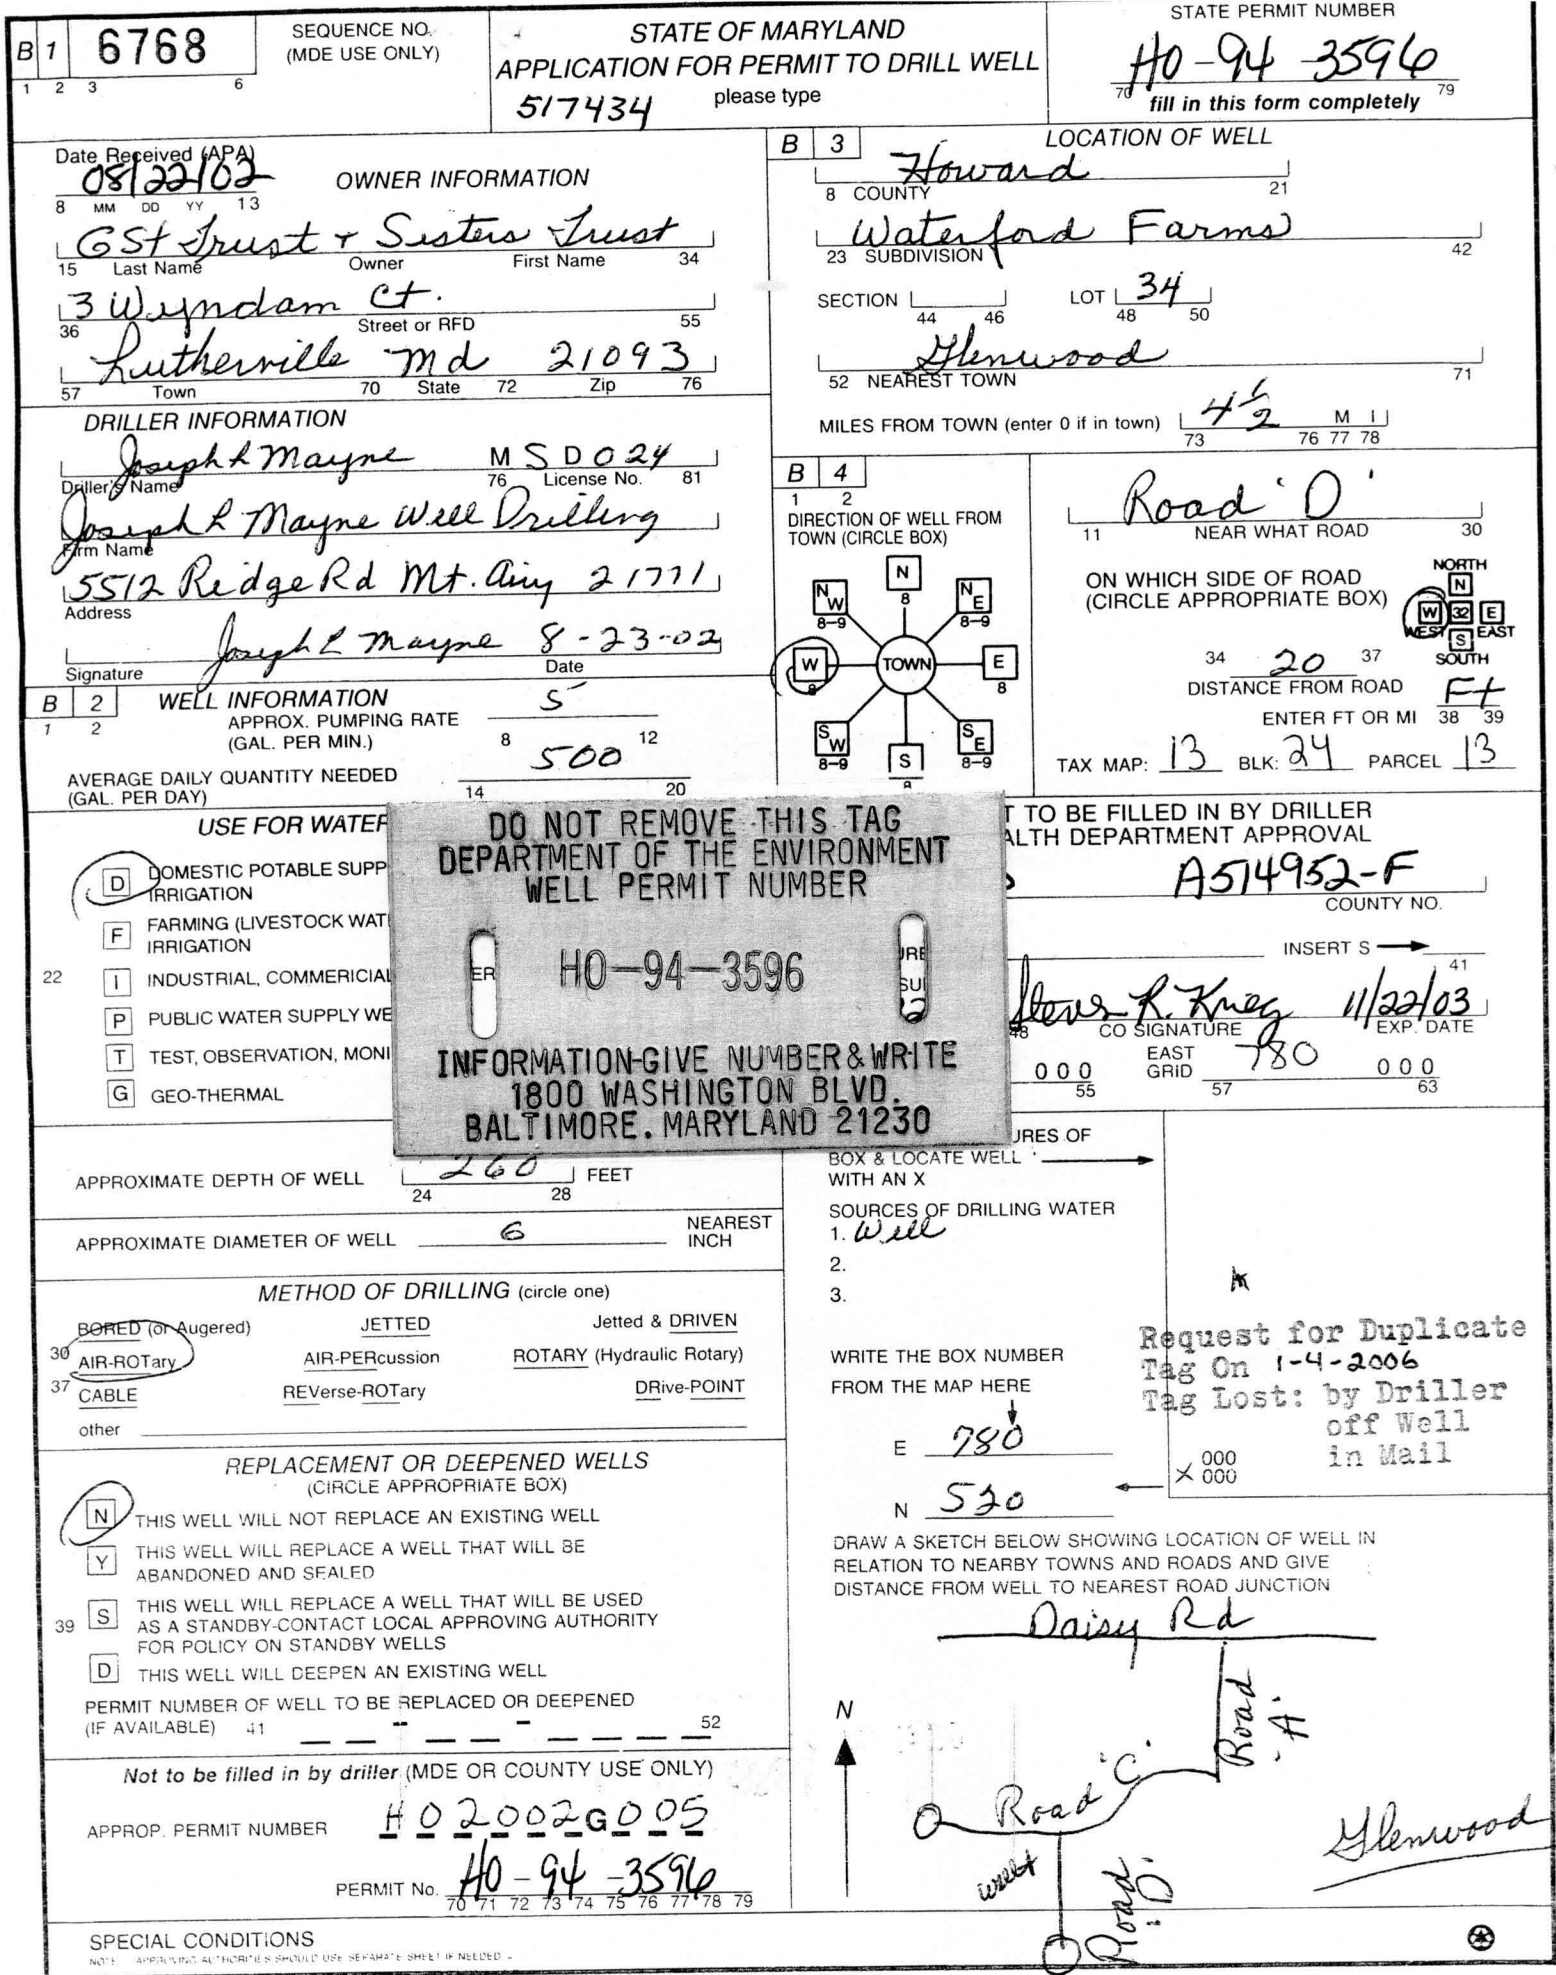 B 1 6768
1 2 3 6
SEQUENCE NO.
(MDE USE ONLY)
STATE OF MARYLAND
APPLICATION FOR PERMIT TO DRILL WELL
please type
517434
STATE PERMIT NUMBER
HO-94-3596
70 79
fill in this form completely
Date Received (APA)
08/22/02
8 MM DD YY 13
OWNER INFORMATION
GSt Trust + Sisters Trust
15 Last Name Owner First Name 34
3 Wyndam Ct.
36 Street or RFD 55
Lutherville Md 21093
57 Town 70 State 72 Zip 76
DRILLER INFORMATION
Joseph L Mayne MSD024
Driller's Name 76 License No. 81
Joseph L Mayne Well Drilling
Firm Name
5512 Ridge Rd Mt. Airy 21771
Address
Joseph L Mayne 8-23-02
Signature Date
B 2 WELL INFORMATION
1 2
APPROX. PUMPING RATE
(GAL. PER MIN.)
5
8 12
AVERAGE DAILY QUANTITY NEEDED
(GAL. PER DAY)
500
14 20
B 3 LOCATION OF WELL
Howard
8 COUNTY 21
Waterford Farms
23 SUBDIVISION 42
SECTION LOT 34
44 46 48 50
Glenwood
52 NEAREST TOWN 71
MILES FROM TOWN (enter 0 if in town) 4 1/2 M I
73 76 77 78
B 4
1 2
DIRECTION OF WELL FROM
TOWN (CIRCLE BOX)
N
8
NW
8-9
NE
8-9
W
8
TOWN
E
8
SW
8-9
S
8
SE
8-9
Road 'D'
11 NEAR WHAT ROAD 30
ON WHICH SIDE OF ROAD
(CIRCLE APPROPRIATE BOX)
NORTH
N
W 32 E
WEST S EAST
SOUTH
34 20 37
DISTANCE FROM ROAD Ft
ENTER FT OR MI 38 39
TAX MAP: 13 BLK: 24 PARCEL 13
USE FOR WATER
D DOMESTIC POTABLE SUPP
IRRIGATION
F FARMING (LIVESTOCK WAT
IRRIGATION
22
I INDUSTRIAL, COMMERICIAL
P PUBLIC WATER SUPPLY WE
T TEST, OBSERVATION, MONI
G GEO-THERMAL
DO NOT REMOVE THIS TAG
DEPARTMENT OF THE ENVIRONMENT
WELL PERMIT NUMBER
ER HO-94-3596
INFORMATION-GIVE NUMBER&WRITE
1800 WASHINGTON BLVD.
BALTIMORE. MARYLAND 21230
T TO BE FILLED IN BY DRILLER
ALTH DEPARTMENT APPROVAL
A514952-F
COUNTY NO.
INSERT S
41
Steven R. Krieg 11/22/03
48 CO SIGNATURE EXP. DATE
000 EAST GRID 780 000
55 57 63
APPROXIMATE DEPTH OF WELL 260 FEET
24 28
APPROXIMATE DIAMETER OF WELL 6 NEAREST
INCH
METHOD OF DRILLING (circle one)
BORED (or Augered) JETTED Jetted & DRIVEN
30 AIR-ROTary AIR-PERcussion ROTARY (Hydraulic Rotary)
37 CABLE REVerse-ROTary DRive-POINT
other
REPLACEMENT OR DEEPENED WELLS
(CIRCLE APPROPRIATE BOX)
N THIS WELL WILL NOT REPLACE AN EXISTING WELL
Y THIS WELL WILL REPLACE A WELL THAT WILL BE
ABANDONED AND SEALED
39 S THIS WELL WILL REPLACE A WELL THAT WILL BE USED
AS A STANDBY-CONTACT LOCAL APPROVING AUTHORITY
FOR POLICY ON STANDBY WELLS
D THIS WELL WILL DEEPEN AN EXISTING WELL
PERMIT NUMBER OF WELL TO BE REPLACED OR DEEPENED
(IF AVAILABLE) 41 52
Not to be filled in by driller (MDE OR COUNTY USE ONLY)
APPROP. PERMIT NUMBER HO2002G005
PERMIT No. HO-94-3596
70 71 72 73 74 75 76 77 78 79
SPECIAL CONDITIONS
NOTE APPROVING AUTHORITIES SHOULD USE SEPARATE SHEET IF NEEDED
URES OF
BOX & LOCATE WELL
WITH AN X
SOURCES OF DRILLING WATER
1. Well
2.
3.
WRITE THE BOX NUMBER
FROM THE MAP HERE
E 780
N 520
000
X 000
Request for Duplicate
Tag On 1-4-2006
Tag Lost: by Driller
off Well
in Mail
DRAW A SKETCH BELOW SHOWING LOCATION OF WELL IN
RELATION TO NEARBY TOWNS AND ROADS AND GIVE
DISTANCE FROM WELL TO NEAREST ROAD JUNCTION
Daisy Rd
Road 'A'
N
Road 'C'
well
Road 'D'
Glenwood